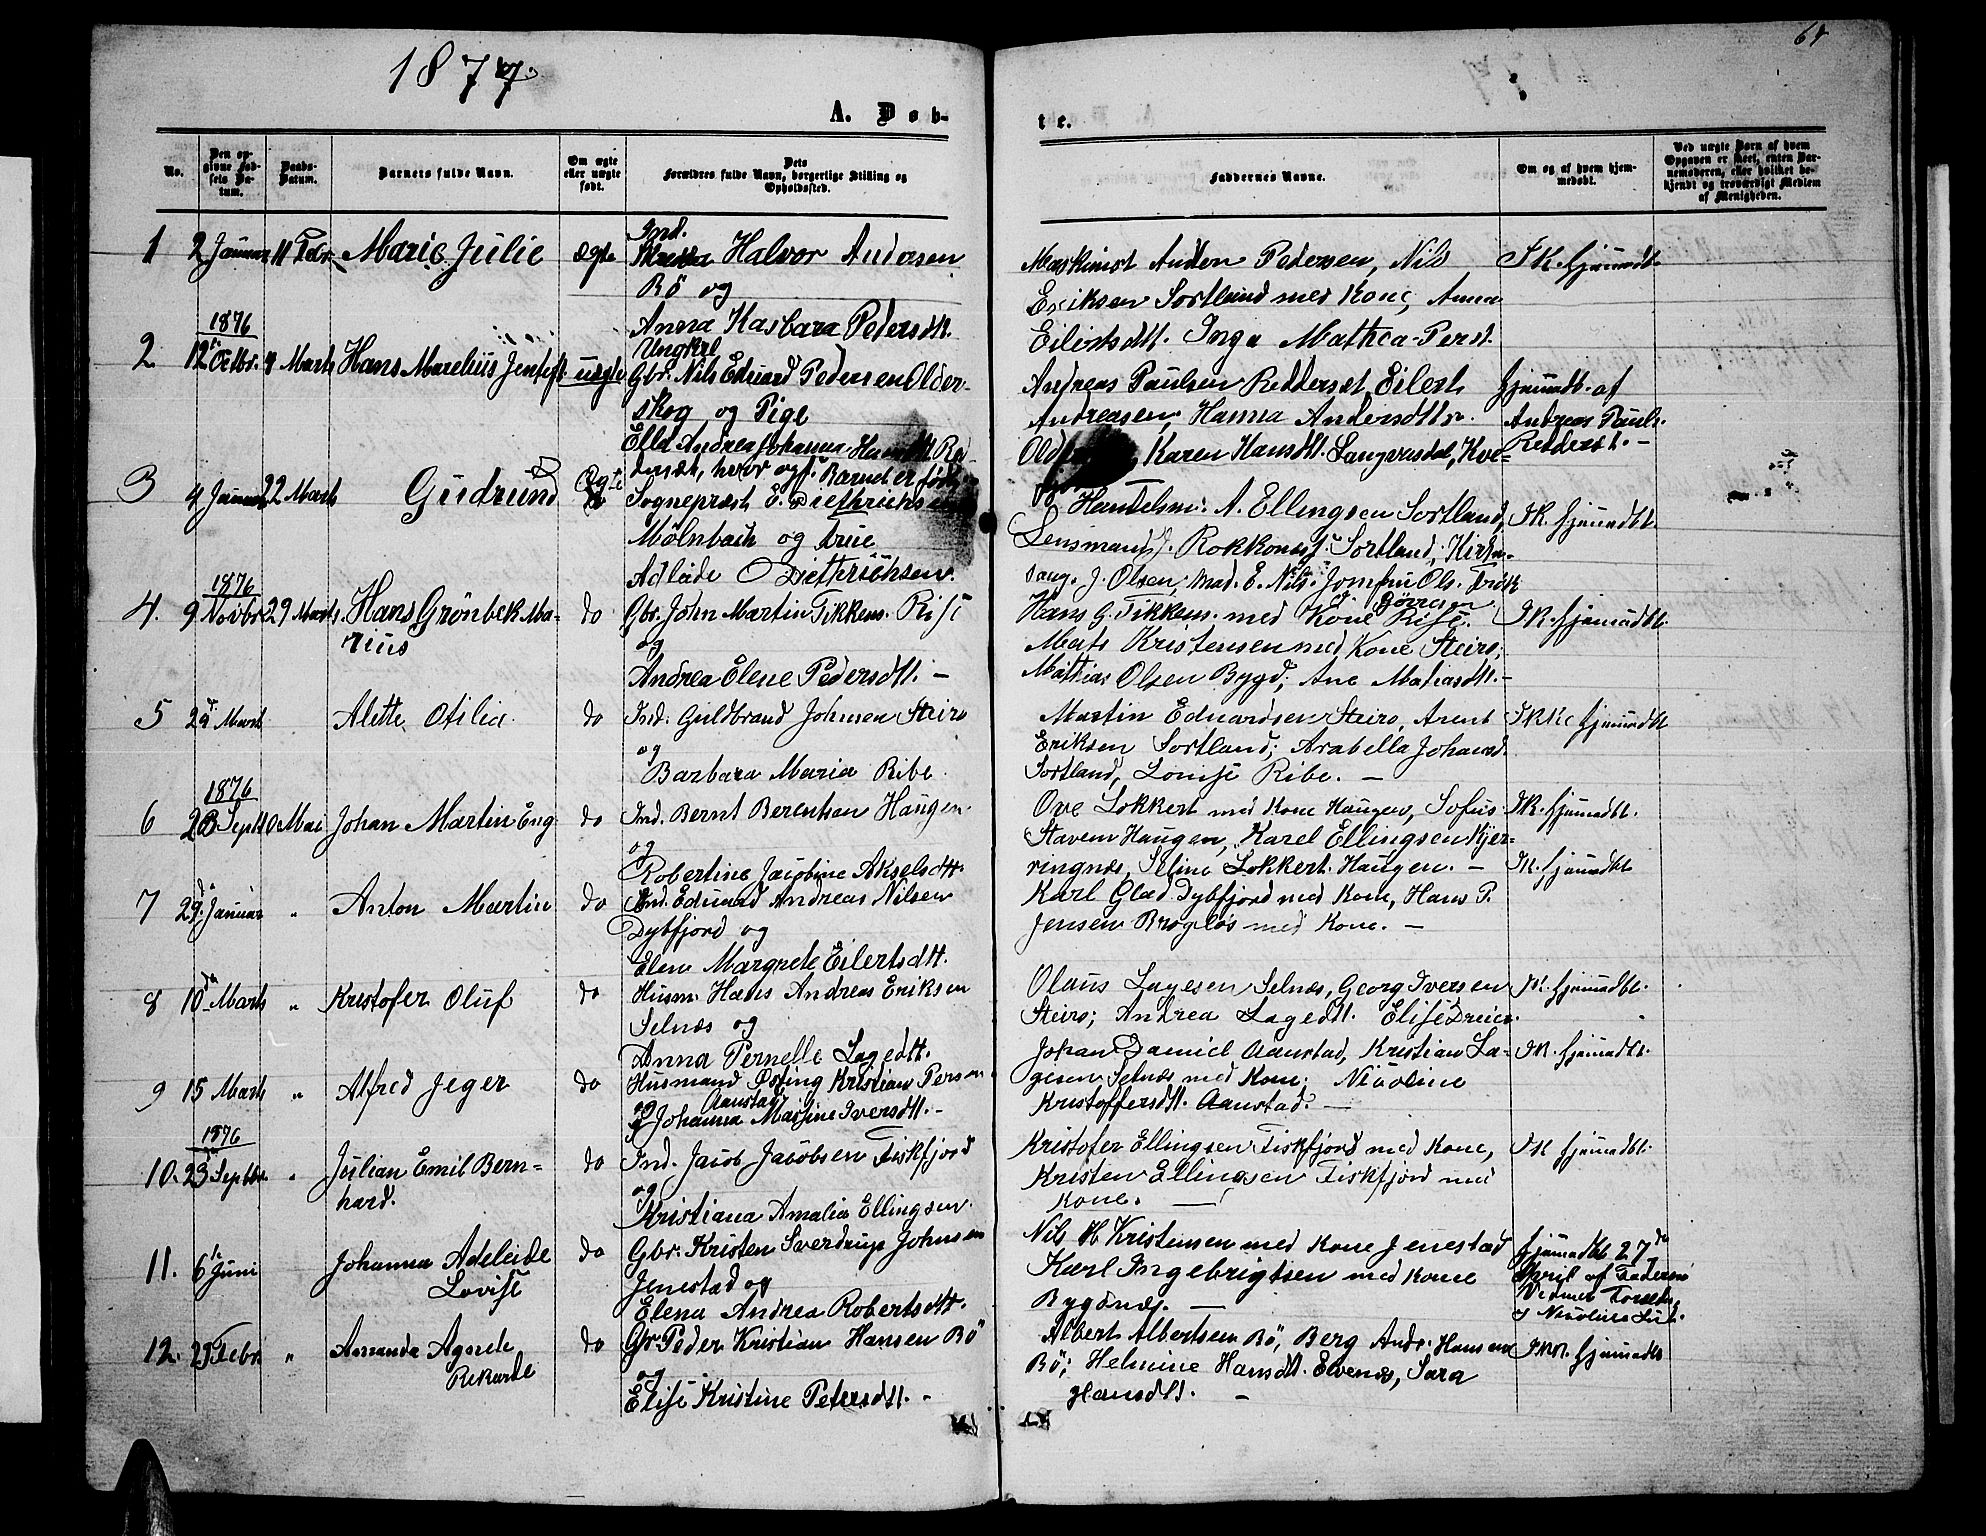 1877
64
A. Døb-
te.
No.
Den opgivne Fødsels Datum.
Daabs-Datum.
Barnets fulde Navn.
Om ægte eller uægte født.
Dets Forældres fulde Navn, borgerlige Stilling og Opholdssted.
Faddernes Navne.
Om og af hvem hjemmedøbt.
Ved uægte Børn af hvem Opgaven er skeet, enten Barnemoderen, eller hvilket bekjendt og troværdigt Medlem af Menigheden.
1 2 Januar 11 Febr. Marie Julie ægte
Ind.
Halvor Andersen
Bö og
Anna Kasbara Pedersdtr.
Maskinist Anden Pedersen, Nils
Eriksen Sortland med Kone, Anna
Eilertsdtt. Inga Mathea Persd.
IK. hjemmedbt.
1876
2 12 Octbr. 4 Marts Hans Marelius Jentoft uægte
Ungkrl
Gbr. Nils Eduard Pedersen Older-
skog og Pige
Andrea Johanna
hvor Barnet er født
Andreas Paulsen Reddersæt, Eilert
Andreasen, Hanna Andersdttr.
Karen Hansdt. Langvasdal,
hjemmedbt. af
Andreas Pauls.
Redderst. -
3 4 Januar 22 Marts Gudrund Ægte
Sogneprest E. Diethrichsen
Mölnbach og Frue
Adleide Diethrichsen.
Handelsm: A. Ellingsen Sortland,
Lensmand J. Rokkones Sortland, Kirke-
sang. J. Olsen, Mad. E. Nils. Jomfru Ols.
IK. hjemmedbt.
1876
4. 9 Novbr 29 Marts. Hans Grönbek Ma-
rius
do Gbr. John Martin Fikkens. Rise
og
Andrea Elene Pedersdtt. -
Hans G. Fikkens. med Kone Rise.
Mats Kristensen med Kone Steiro;
Mathias Olsen Bygd, Ane Matiasdtt. -
IK. hjemmedbt.
5 29 Mart Alette Otilia do Ind. Guldbrand Johnsen Steiro
og
Barbara Maria Ribe.
Martin Eduardsen Steiro, Arent
Eriksen Sortland; Arabella Johansd.
Sortland, Lovise Ribe. -
hjemmedbt
1876
6 23 Septb 10 Mai Johan Martin Eng do Ind. Bernt Berentsen Haugen
og
Robertine Jacobine Akselsdtt.
Ove Lokkert med Kone Haugen, Sofus
Stavem Haugen, Karel Ellingsen Kjer-
ringnes, Seline Lokkert Haugen. -
IK. hjemmedbt.
7 29. Januar " Anton Martin do Ind. Eduard Andreas Nilsen
Dybfjord og
Elen Margrete Eilertsdtt.
Karl Glad Dybfjord med Kone, Hans P.
Jensen Brogløs med Kone. -
IK. hjemmedbt
8 10 Marts " Kristofer Oluf do Husm. Hans Andreas Eriksen
Selnæs og
Anna Pernelle Lagedtt.
Olaus Lagesen Selnæs, Georg Iversen
Steiro; Andrea Lagedtt. Elise Dreier.
IK. hjemmedbt.
9 15 Marts " Alfred Jeger do Husmand Kristian Persen
og Aanstad
Johanna Marsine Iversdtt. -
Johan Daniel Aanstad, Kristian La-
gesen Selnæs med Kone, Nicoline
Kristoffersdtt. Aanstad. -
IK. hjemmedbt.
1876
10. 23 Septbr. " Julian Emil Bern-
hard.
do Ind. Jacob Jacobsen Fiskfjord
og
Kristiana Amalia Ellingsen.
Kristofer Ellingsen Fiskfjord med Kone,
Kristen Ellingsen Fiskfjord med
Kone. -
IK hjemmedbt.
11. 6 Juni Johanna Adeleide
Lovise
do Gbr. Kristen Sverdrup Johnsen
Jenestad og
Elena Andrea Robertsdtt.
Nils H Kristensen med Kone Jenestad
Karl Ingebrigtsen med Kone
Bygdnes. -
hjemmedbt 27
April af Faderen
12. Febr. " Amanda Agnete
Rekarde
do Gbr Peder Kristian Hansen Bö
og
Elise Kristine Petersdtt. -
Albert Albertsen Bö, Berg Andr. Hansen
Bö; Helmine Hansdtt. Evenes, Sara
Hansdtt. -
hjemmedbt